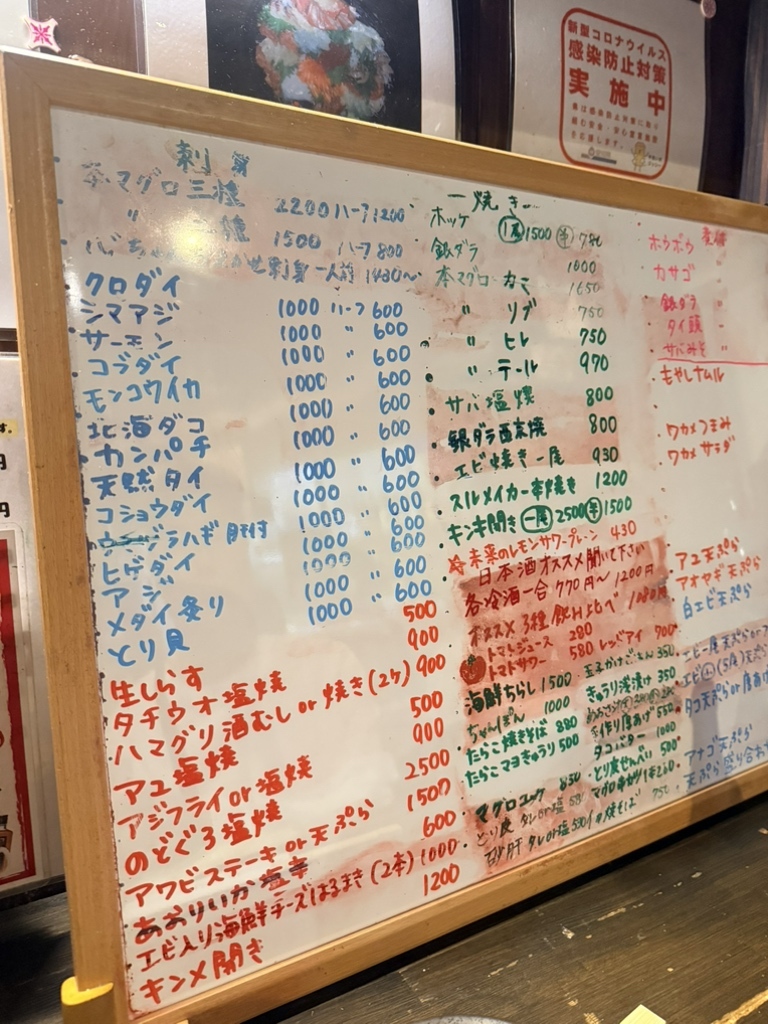 新型コロナウイルス
感染防止対策
実施中
刺身
本マグロ三種 2200 ハーフ1200
〃 二種 1500 ハーフ800
刺身一人前
クロダイ 1000 ハーフ 600
シマアジ 1000 〃 600
サーモン 1000 〃 600
コラダイ 1000 〃 600
モンコウイカ 1000 〃 600
北海ダコ 1000 〃 600
カンパチ 1000 〃 600
天然タイ 1000 〃 600
コショウダイ 1000 〃 600
ウマヅラハギ 肝付 1000 〃 600
ヒゲダイ 1000 〃 600
アジ 1000 〃 600
メダイ炙り 1000 〃 600
とり貝
生しらす 500
タチウオ塩焼 900
ハマグリ酒むし or 焼き(2ケ) 900
アユ塩焼 500
アジフライor塩焼 900
のどぐろ塩焼 2500
アワビステーキor天ぷら 1500
あおりいか塩辛 600
エビ入り海鮮チーズはるまき(2本) 1000
キンメ開き 1200
焼き
ホッケ 1尾 1500 半 780
銀ダラ 1000
本マグロ カマ 1650
〃 リブ 750
〃 ヒレ 750
〃 テール 970
サバ塩焼 800
銀ダラ西京焼 800
エビ焼き一尾 930
スルメイカ一本焼き 1200
キンキ開き 一尾 2500 半 1500
未来のレモンサワープレーン 430
日本酒オススメ聞いて下さい
各冷酒一合 770円〜1200円
オススメ3種飲み比べ
トマトジュース 280
トマトサワー 580 レッドアイ 700
海鮮ちらし 1500 玉子かけごはん 350
ちゃんぽん 1000 きゅうり浅漬け 350
たらこ焼きそば 880 手作り唐あげ 550
たらこマヨきゅうり 500 タコバター 1000
とり皮せんべい 500
マグロユッケ 850 マグロ串カツ1本260
とり皮 タレor塩
砂肝 タレor塩 焼そば 750
煮付
ホウボウ
カサゴ
銀ダラ 〃
タイ頭 〃
サバみそ 〃
もやしナムル
ワカメつまみ
ワカメサラダ
アユ天ぷら
アオヤギ天ぷら
白エビ天ぷら
エビ一尾天ぷらor
エビ小(5尾)天ぷら
タコ天ぷらor唐あげ
アナゴ天ぷら
天ぷら盛り合わせ